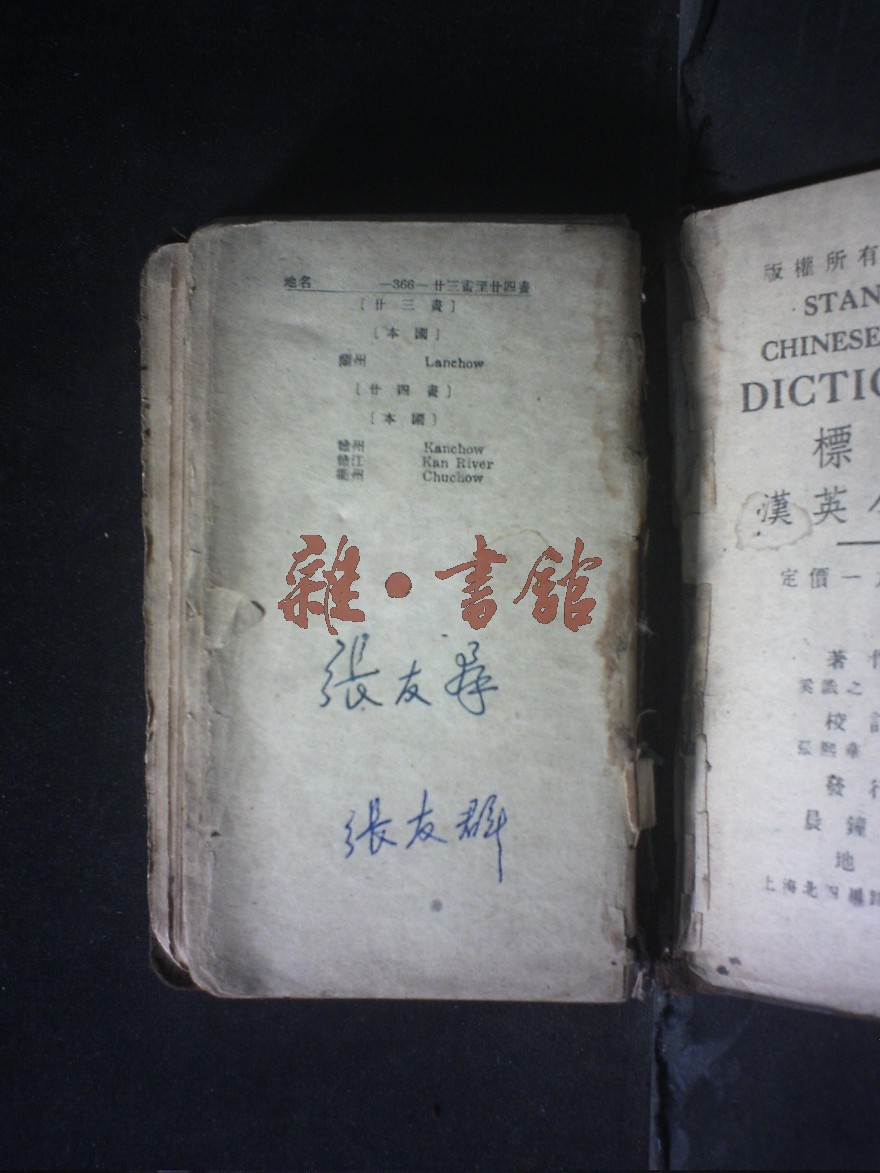 地名 —366— 廿三畫至廿四畫
[廿三畫]
[本國]
蘭州 Lanchow
[廿四畫]
[本國]
贛州 Kanchow
贛江 Kan River
衢州 Chuchow
雜·書館
張友群
張友群
版權所有
STAN
CHINESE
DICTIO
標
漢英
定價一
著作
吳
之
校訂
張熙
發行
晨鐘
地
上海北四
路